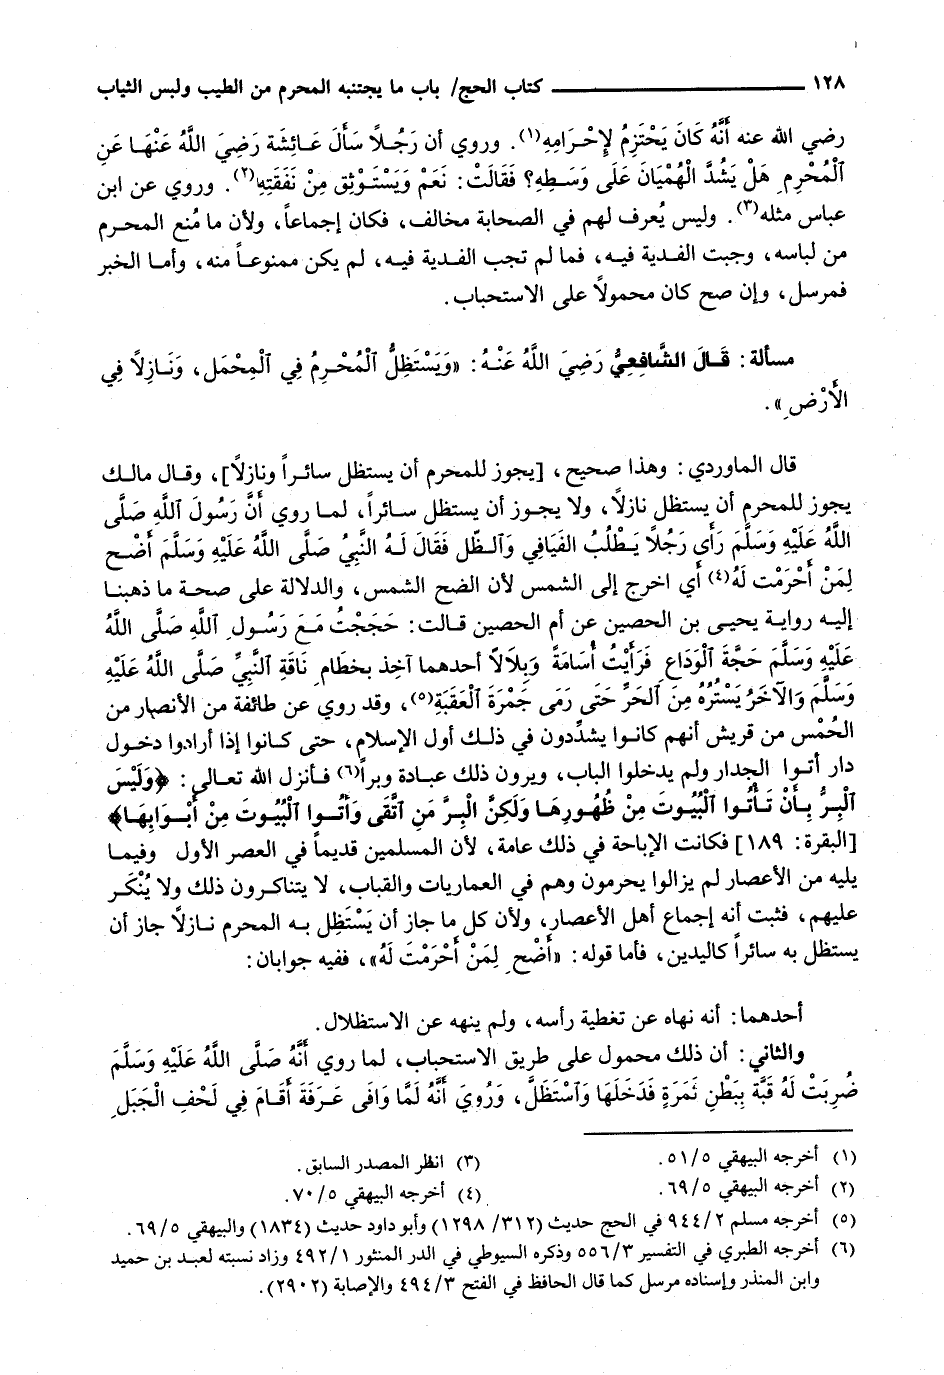 ١٢٨ ــــــــــــــــــــ كتاب الحج/ باب ما يجتنبه المحرم من الطيب ولبس الثياب
رضي الله عنه أَنَّهُ كَانَ يَحْتَزِمُ لِإحْرَامِهِ(١). وروي أن رَجُلاً سَأَلَ عَائِشَة رَضِيَ اللَّهُ عَنْهَا عَنِ
ٱلْمُحْرِمِ هَلْ يَشُدَّ الْهِمْيَانَ عَلَى وَسَطِهِ؟ فَقَالَتْ: نَعَمْ وَيَسْتَوْثِق مِنْ نَفَقَتِهِ(٢). وروي عن ابن
عباس مثله(٣). وليس يُعرف لهم في الصحابة مخالف، فكان إجماعاً، ولأن ما مُنع المحرم
من لباسه، وجبت الفدية فيه، فما لم تجب الفدية فيه، لم يكن ممنوعاً منه، وأما الخبر
فمرسل، وإن صح كان محمولاً على الاستحباب.
مسألة: قَالَ الشَّافِعِيُّ رَضِيَ اللَّهُ عَنْهُ: «وَيَسْتَظِلُّ ٱلْمُحْرِمُ فِي ٱلْمِحْمَلِ، وَنَازِلاً فِي
الأَرْضِ».
قال الماوردي: وهذا صحيح، [يجوز للمحرم أن يستظل سائراً ونازلاً]، وقال مالك
يجوز للمحرم أن يستظل نازلاً، ولا يجوز أن يستظل سائراً، لما روي أَنَّ رَسُولَ ٱللَّهِ صَلَّى
اللَّهُ عَلَيْهِ وَسَلَّمَ رَأَى رَجُلاً يَطْلُبُ الفَيَافِي وَٱلظِّل فَقَالَ لَهُ النَّبِيُّ صَلَّى اللَّهُ عَلَيْهِ وَسَلَّمَ أَضْحِ
لِمَنْ أَحْرَمْت لَهُ(٤) أي اخرج إلى الشمس لأن الضح الشمس، والدلالة على صحة ما ذهبنا
إليه رواية يحيى بن الحصين عن أم الحصين قالت: حَجَجْتُ مَعَ رَسُولِ ٱللَّهِ صَلَّى اللَّهُ
عَلَيْهِ وَسَلَّمَ حَجَّةَ ٱلْوَدَاعِ فَرَأَيْتُ أُسَامَةَ وَبِلَالاً أحدهما آخِذ بخطَامِ نَاقَةِ النَّبِيِّ صَلَّى اللَّهُ عَلَيْهِ
وَسَلَّمَ وَالآخَرُ يَسْتُرُهُ مِنَ ٱلحَرِّ حَتَى رَمَى جَمْرَةَ ٱلْعَقَبَةِ(٥)، وقد روي عن طائفة من الأنصار من
الحُمْس من قريش أنهم كانوا يشدِّدون في ذلك أول الإسلام، حتى كانوا إذا أرادوا دخول
دار أتوا الجدار ولم يدخلوا الباب، ويرون ذلك عبادة وبراً(٦) فأنزل الله تعالى: ﴿وَلَيْسَ
ٱلْبِرُّ بِأَنْ تَأْتُوا ٱلْبُيُوتَ مِنْ ظُهُورِهَا وَلَكِنَّ الْبِرَّ مَنِ ٱتَّقَى وَأْتُوا الْبُيُوتَ مِنْ أَبْوَابِهَا﴾
[البقرة: ١٨٩] فكانت الإباحة في ذلك عامة، لأن المسلمين قديماً في العصر الأول وفيما
يليه من الأعصار لم يزالوا يحرمون وهم في العماريات والقباب، لا يتناكرون ذلك ولا يُنْكَر
عليهم، فثبت أنه إجماع أهل الأعصار، ولأن كل ما جاز أن يَسْتَظِل به المحرم نازلاً جاز أن
يستظل به سائراً كاليدين، فأما قوله: «أَضْحِ لِمَنْ أَحْرَمْتَ لَهُ»، ففيه جوابان:
أحدهما: أنه نهاه عن تغطية رأسه، ولم ينهه عن الاستظلال.
والثاني: أن ذلك محمول على طريق الاستحباب، لما روي أَنَّهُ صَلَّى اللَّهُ عَلَيْهِ وَسَلَّمَ
ضُرِبَتْ لَهُ قبَّة بِبَطْنِ نَمِرَةٍ فَدَخَلَهَا وَٱسْتَظَلَّ، وَرُوِيَ أَنَّهُ لَمَّا وَافَى عَرَفَةَ أَقَامَ فِي لَحْفِ الْجَبَلِ
(١) أخرجه البيهقي ٥/ ٥١.
(٢) أخرجه البيهقي ٥/ ٦٩.
(٣) انظر المصدر السابق.
(٤) أخرجه البيهقي ٥/ ٧٠.
(٥) أخرجه مسلم ٢/ ٩٤٤ في الحج حديث (٣١٢/ ١٢٩٨) وأبو داود حديث (١٨٣٤) والبيهقي ٥/ ٦٩.
(٦) أخرجه الطبري في التفسير ٣/ ٥٥٦ وذكره السيوطي في الدر المنثور ١/ ٤٩٢ وزاد نسبته لعبد بن حميد
وابن المنذر وإسناده مرسل كما قال الحافظ في الفتح ٣/ ٤٩٤ والإصابة (٢٩٠٢).